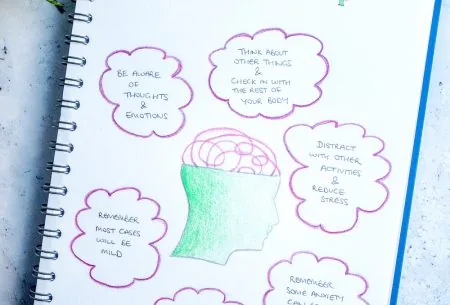 THINK ABOUT
OTHER THINGS
&
CHECK IN WITH
THE REST OF
YOUR BODY
BE AWARE
OF
THOUGHTS
&
EMOTIONS
DISTRACT
WITH OTHER
ACTIVITIES
&
REDUCE
STRESS
REMEMBER
MOST CASES
WILL BE
MILD
REMEMBER
SOME ANXIETY